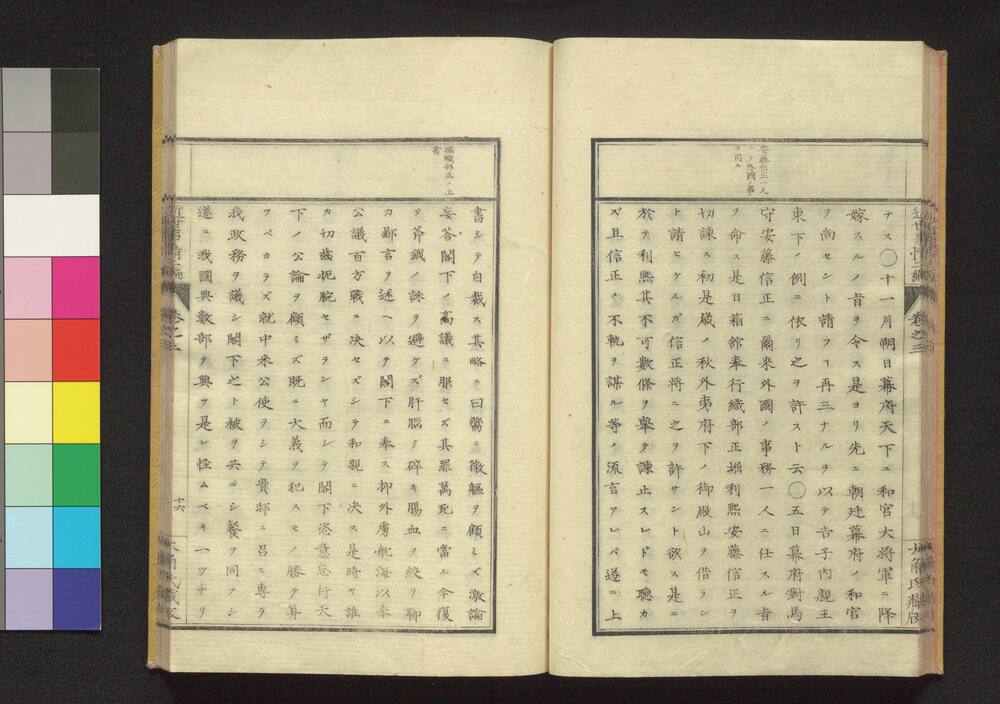 安藤信正一人
ニテ外國ノ事
ヲ司ル
ナス〇十一月朔日幕府天下ニ和宮大將軍ニ降
嫁スルノ旨ヲ令ス是ヨリ先ニ朝廷幕府ノ和宮
ヲ尚セント請フ一再三ナルヲ以テ吉子内親王
東下ノ例ニ依リ之ヲ許スト云〇五日幕府對馬
守安藤信正ニ爾来外國ノ事務一人ニ任スル旨
ヲ命ス是日箱館奉行織部正堀利熙安藤信正ヲ
切諫ス初是歳ノ秋外夷府下ノ御殿山ヲ借ラン
ト請ヒケルガ信正將ニ之ヲ許サント欲ス是ニ
於テ利熙其不可數條ヲ擧テ諫止スレドモ聽カ
ズ且信正ノ不軌ヲ謀ル等ノ流言アレバ遂ニ上
卷之三
堀織部正ノ上
書
書シテ自裁ス其略ニ曰嚮ニ微軀ヲ顧ミズ激論
妄答閣下ノ高議ニ服セズ其罪萬死ニ當ル今復
タ斧鉞ノ誅ヲ避ケズ肝腦ヲ碎キ腸血ヲ絞リ聊
カ鄙言ヲ述ヘ以テ閣下ニ奉ス抑外虜航海以来
公議百方戰ニ决セズシテ和親ニ决ス是時ヤ誰
カ切齒扼腕セザランヤ而シテ閣下恣意忘行天
下ノ公論ヲ顧ミズ既ニ大義ヲ犯スモノ勝テ算
フベカラズ就中米公使ヲシテ貴邸ニ召シ專ラ
我政務ヲ議シ閣下之ト被ヲ共ニシ餐ヲ同フシ
遂ニ我國典數部ヲ與フ是レ怪ムベキ一ツナリ
十六